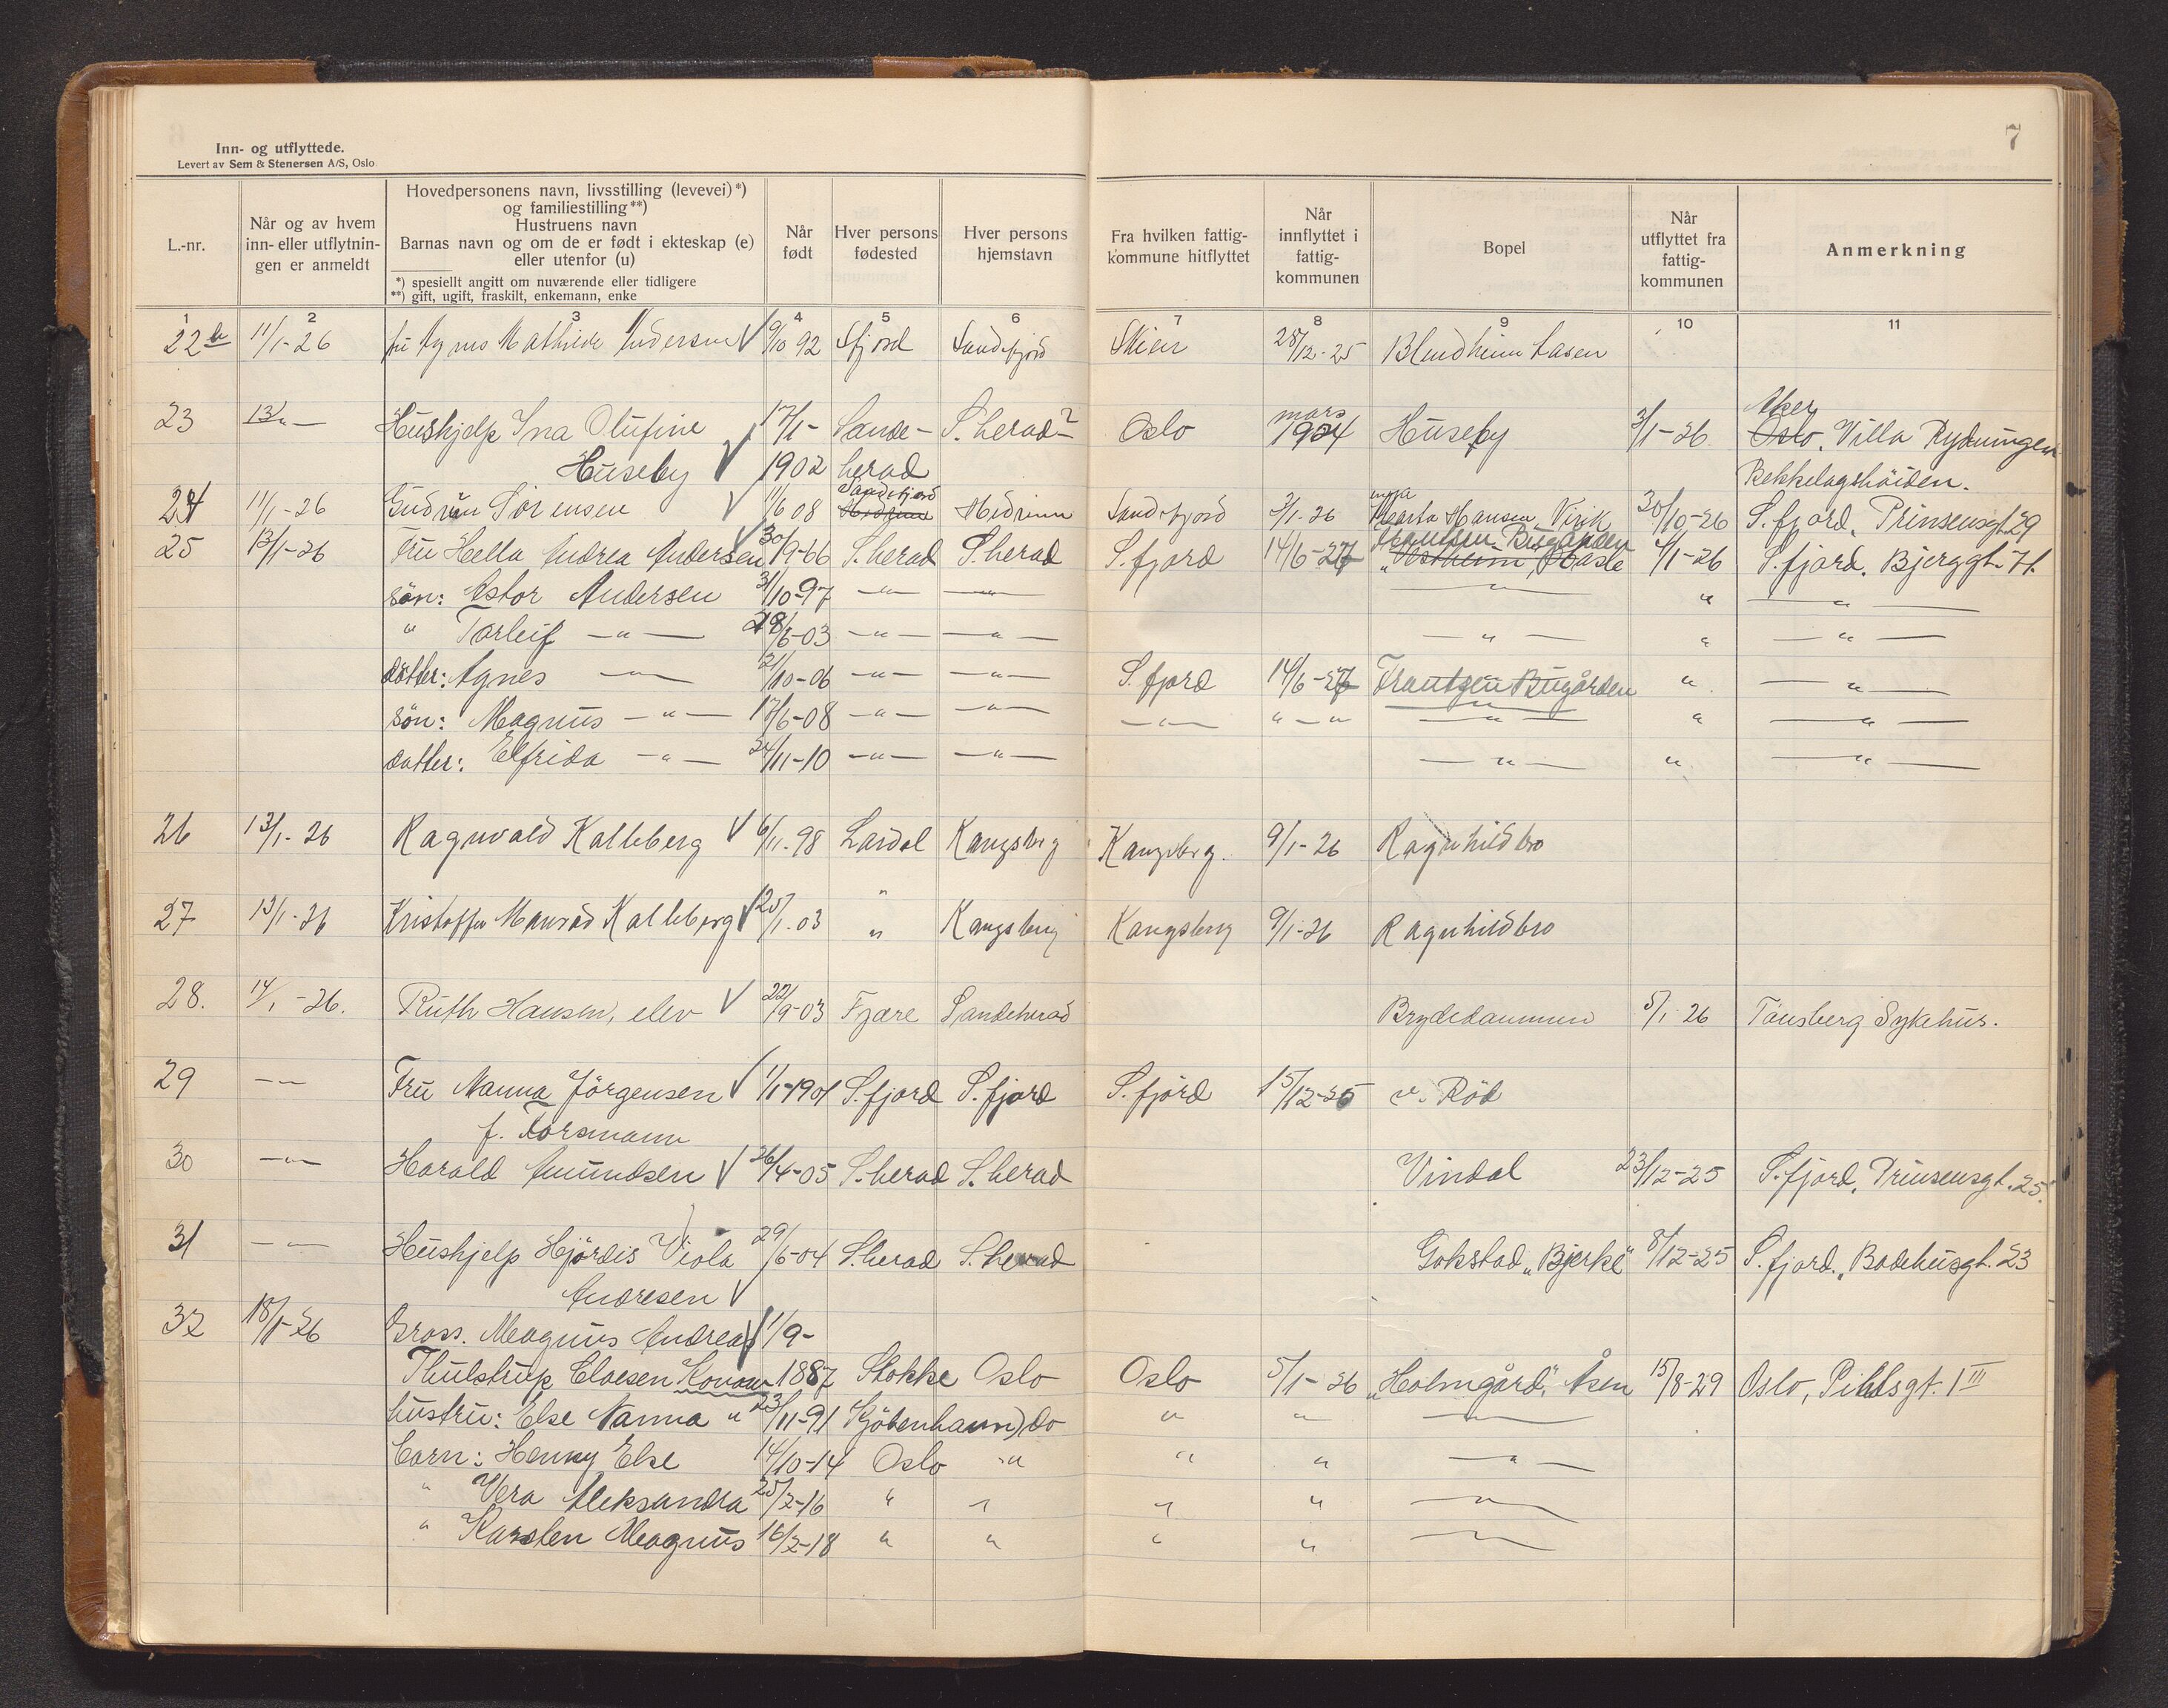 7
Inn- og utflyttede.
Levert av Sem & Stenersen A/S, Oslo
L.-nr.
Når og av hvem inn- eller utflytnin- gen er anmeldt
Hovedpersonens navn, livsstilling (levevei)*)
og familiestilling**)
Hustruens navn
Barnas navn og om de er født i ekteskap (e)
eller utenfor (u)
*) spesiellt angitt om nuværende eller tidligere
**) gift, ugift, fraskilt, enkemann, enke
Når født
Hver persons fødested
Hver persons hjemstavn
Fra hvilken fattig- kommune hitflyttet
Når innflyttet i fattig- kommunen
Bopel
Når utflyttet fra fattig- kommunen
Anmerkning
1 2 3 4 5 6 7 8 9 10 11
22b 11/1-26 fru Agnes Mathilde Andersen √ 9/10 92 Sfjord Sandefjord Skien 28/12-25
23 13 " — Hushjelp Ina Olufine 17/1- Sande- S.herad? Oslo mars 1924 Huseby 3/1-26 Aker Oslo. Villa Rydningen
Huseby √ 1902 herad Bekkelagshöiden.
24 11/1-26 Gudrun Sörensen √ 11/6 08 Sandefjord Hedrum Hedrum Sandefjord 3/1-26 Marta Hansen, Virik 30/10-26 S.fjord, Prinsensgt 29
25 13/1-26 Fru Hella Andrea Andersen √ 30/9-66 S.herad S.herad S.fjord 14/6-27 Bugården "Vestheim", Hasle 4/1-26 S.fjord. Bjerggt. 71.
sön: Astor Andersen 31/10-97 — " — — " — — " — " — " —
" Torleif — " — 28/6-03 — " — — " — — " — " — " —
datter: Agnes — " — 21/10-06 — " — — " — S.fjord 14/6-27 Frantzen Bugården " — " —
sön: Magnus — " — 17/6-08 — " — — " — — " — " — " — " — " — " —
datter: Elfrida — " — 24/11-10 — " — — " — — " — " — " —
26 13/1-26 Ragnvald Kalleberg √ 6/11-98 Lardal Kongsberg Kongsberg. 9/1-26 Ragnhildbro
27 13/1-26 Kristoffer Kalleberg √ 25/1-03 " Kongsberg Kongsberg 9/1-26 Ragnhildbro
28. 14/1-26. Ruth Hansen, elev √ 22/9-03 Fjære Sandeherad Brydedammen 5/1 26 Tönsberg Sykehus.
29 — " — Fru Nanna Jörgensen √ 1/1-1901 S.fjord S.fjord S.fjord 15/12-25 v. Röd
f. Torsmann
30 — " — Harald Amundsen √ 26/4-05 S.herad S.herad Vindal 23/12-25 S.fjord, Prinsensgt. 25.
31 — " — Hushjelp Hjördis Viola 29/6-04 S.herad S.herad Gokstad "Bjerke" 8/12-25 S.fjord., Badehusgt. 23
Andresen √
32 18/1-26 Gross. Magnus Andreas √ 1/9-
Thulstrup Clausen Konow 1887 Stokke Oslo Oslo 5/1-26 "Holmgård", Åsen 15/8-29 Oslo, Pihlsgt. 1 III
hustru: Else Nanna " 23/11-91 Kjöbenhavn) do " " — " —
barn: Henny Else 14/10-14 Oslo " " " — " —
" Vera Aleksandra 25/2-16 " " " " — " —
" Karsten Magnus 16/2-18 " " " " — " —